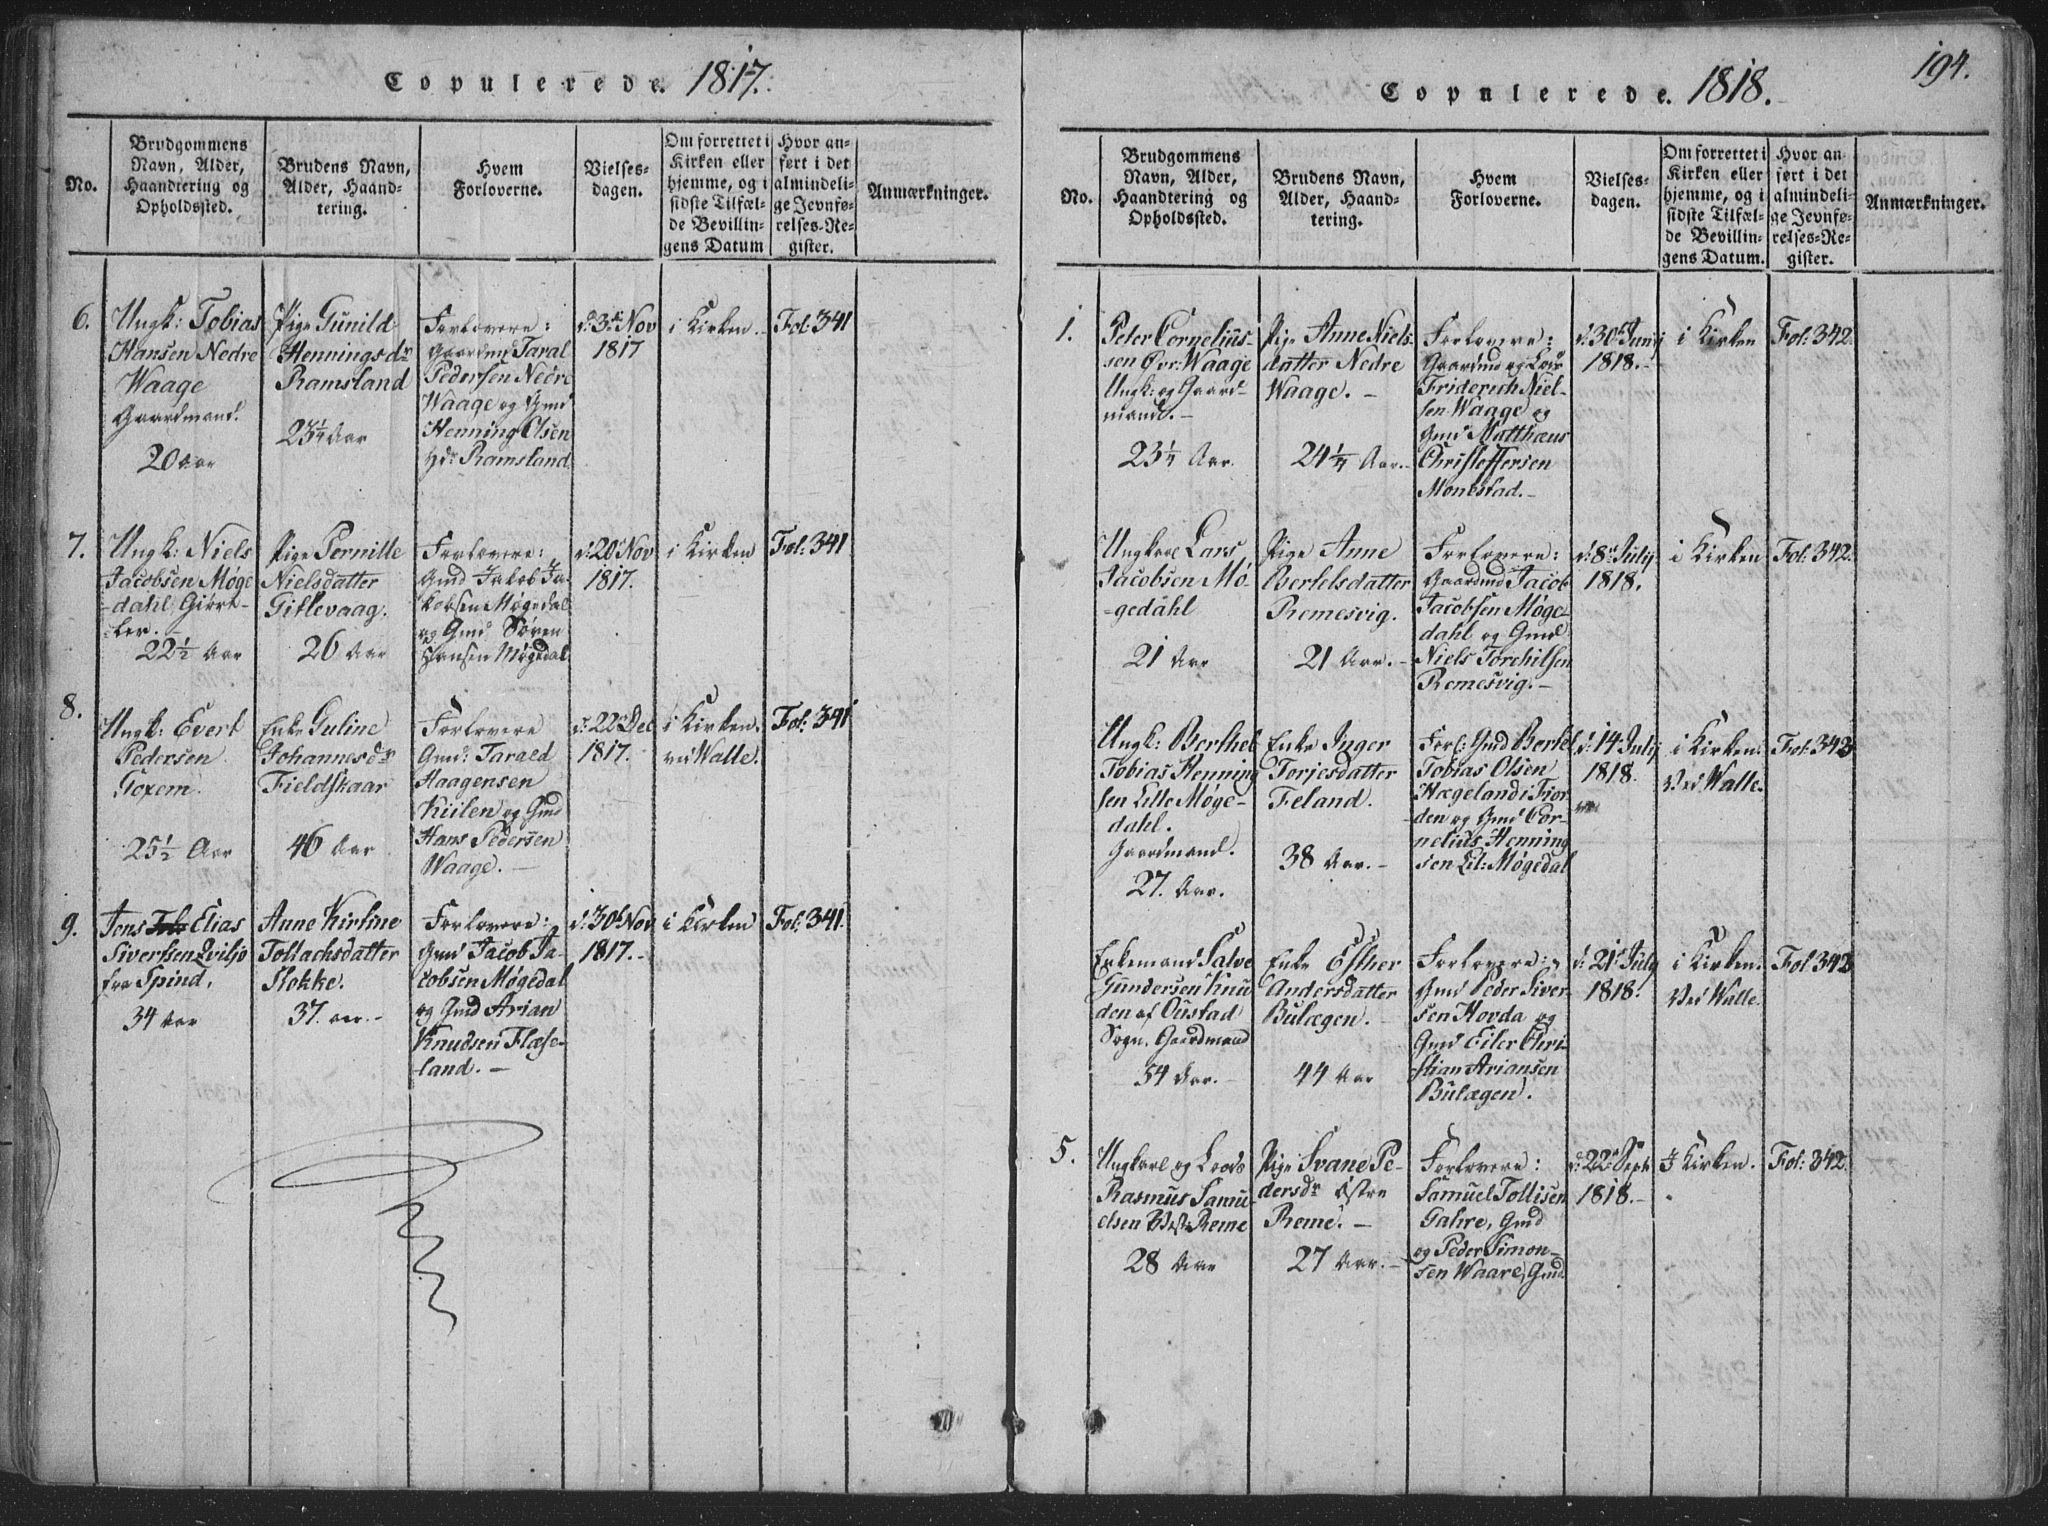 Copulerede. 1817.
No.
Brudgommens
Navn, Alder,
Haandtering og
Opholdssted.
Brudens Navn,
Alder, Haand-
tering.
Hvem
Forloverne.
Vielses-
dagen.
Om forrettet i
Kirken eller
hjemme, og i
sidste Tilfæl-
de Bevillin-
gens Datum
Hvor an-
ført i det
almindeli-
ge Jevnfø-
relses-Re-
gister.
Anmærkninger.
6.
Ungk: Tobias
Hansen Nedre
Waage
Gaardmand.
20 Aar
Pige Gunild
Henningsdr
Ramsland
23¼ Aar
Forlovere:
Gaardmd Taral
Pedersen Nedre
Waage og Gmd
Henning Olsen
Ydr Ramsland
d: 3de Nov
1817
i Kirken.
Fol: 341
7.
Ungk: Niels
Jacobsen Møge
-dahl, Giørt-
ler. -
22½ Aar
Pige Pernille
Nielsdatter
Gitlevaag.
26 Aar
Forlovere:
Gmd Jakob Ja-
kobsen Møgedal
og Gmd Søren
Hansen Møgedal
d: 20 Nov
1817.
i Kirken
Fol: 341
8.
Ungk: Evert
Pedersen
Foxem.
25½ Aar
Enke Guline
Johannesdr
Fieldskaar
46 Aar
Forlovere
Gmd: Tarald
Haagensen
Kiilen og Gmd
Hans Pedersen
Waage. -
d: 22 Dec
1817.
i Kirken.
ved Walle.
Fol: 341
9.
Jens Elias
Sivertsen Qviljo
fra Spind,
34 Aar
Anne Kirstine
Tollachsdatter
Stokke.
37. Aar. -
Forlovere:
Gmd Jacob Ja-
cobsen Møgedal
og Gmd Arian
Knudsen Flæse-
land. -
d: 30t Nov
1817. -
i Kirken
Fol: 341.
194.
Copulerede. 1818.
No.
Brudgommens
Navn, Alder,
Haandtering og
Opholdssted.
Brudens Navn,
Alder, Haand-
tering.
Hvem
Forloverne.
Vielses-
dagen.
Om forrettet i
Kirken eller
hjemme, og i
sidste Tilfæl-
de Bevillin-
gens Datum.
Hvor an-
ført i det
almindeli-
ge Jevnfø-
relses-Re-
gister.
Anmærkninger.
1.
Peter Cornelius-
sen Øvr: Waage
Ungk: og Gaard-
mand. -
23¼ Aar.
Pige Anne Niels-
datter Nedre
Waage. -
24¼ Aar. -
Forlovere:
Gaardmd og Lods
Friderich Niel-
sen Waage og
Gmd Matthæus
Christoffersen
Monestad. -
d: 30t Junij
1818. -
i Kirken
Fol: 342.
Ungkarl Lars
Jacobsen Mø-
-gedahl
21 Aar
Pige Anne
Bertelsdatter
Remesvig.
21 Aar. -
Forlovere:
Gaardmd Jacob
Jacobsen Møge-
dahl og Gmd
Niels Torchilsen
Remesvig. -
d: 8de Julij
1818.
i Kirken
Fol: 342.
Ungk: Berthel
Tobias Henning
sen Lille Møge-
dahl.
Gaardmand.
27. Aar.
Enke Inger
Torjesdatter
Feland.
38 Aar. -
Forl: Gmd Bertel
Tobias Olsen
Hægeland i Fior
den og Gmd Cor-
nelius Henning
sen Lil: Møgedal
d: 14 Julij
1818.
i Kirken.
Ved Walle.
Fol: 343
Enkemand Salve
Gundersen Knu
den af Oustad
Sogn. Gaardmand
54 Aar. -
Enke Esther
Andersdatter
Bulægen. -
44 Aar
Forlovere:
Gmd Peder Siver-
sen Hovda og
Gmd Eiler Chri-
stian Ariansen
Bulægen.
d: 21 July
1818.
i Kirken.
Ved Walle.
Fol 342
5.
Ungkarl og Lods
Rasmus Samu-
elsen Vest: Reme
28 Aar
Pige Svane Pe-
dersdr Østre
Reme. -
27 Aar. -
Forlovere:
Samuel Tollisen
Gahre, Gmd
og Peder Simon-
sen Waare, Gmd
d: 22 Sept
1818. -
I Kirken.
Fol: 342.